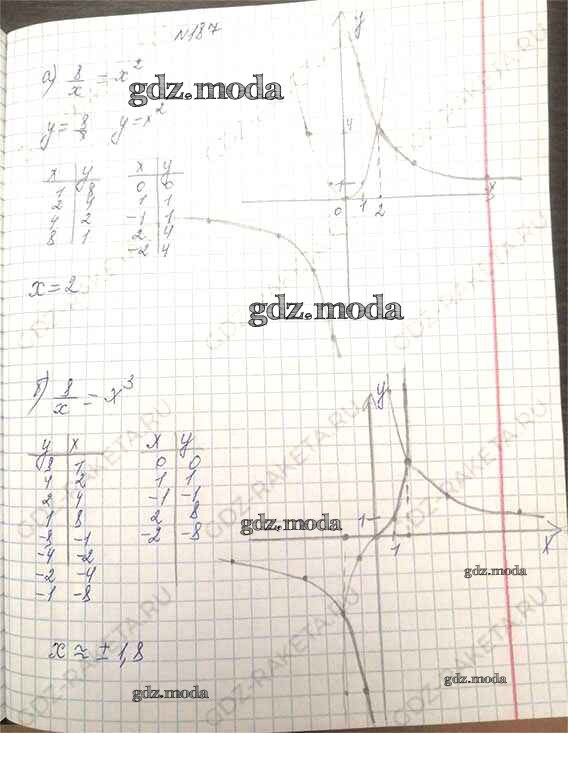 №187
а) 8/x = x²
gdz.moda
y = 8/x y = x²
x y x y
1 8 0 0
2 4 1 1
4 2 -1 1
8 1 2 4
-2 4
x = 2
y
4
1
0 1 2 8
gdz.moda
GDZ-RAKETA.RU
б) 8/x = x³
y x x y
8 1 0 0
4 2 1 1
2 4 -1 -1
1 8 2 8
-8 -1 -2 -8
-4 -2
-2 -4
-1 -8
gdz.moda
y
1
1
x
gdz.moda
x ≈ ±1,8
gdz.moda
gdz.moda
GDZ-RAKETA.RU